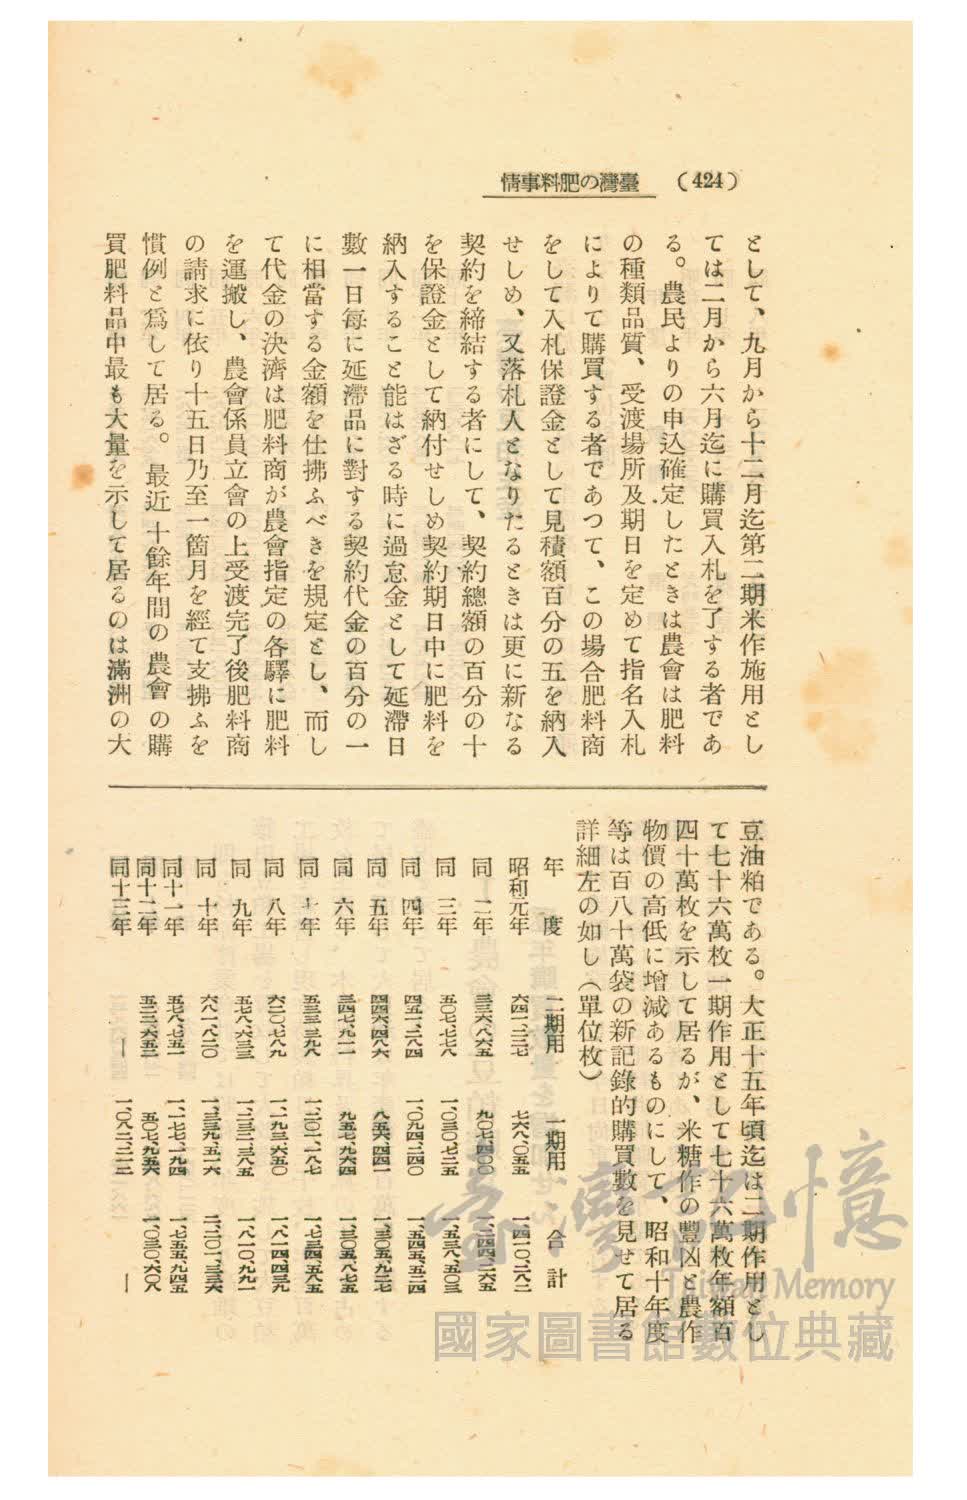 (424) 臺灣の肥料事情
として、九月から十二月迄第二期米作施用とし
ては二月から六月迄に購買入札を了する者であ
る。農民よりの申込確定したときは農會は肥料
の種類品質、受渡場所及期日を定めて指名入札
によりて購買する者であつて、この場合肥料商
をして入札保證金として見積額百分の五を納入
せしめ、又落札人となりたるときは更に新なる
契約を締結する者にして、契約總額の百分の十
を保證金として納付せしめ契約期日中に肥料を
納入すること能はざる時に過怠金として延滯日
數一日每に延滯品に對する契約代金の百分の一
に相當する金額を仕拂ふべきを規定とし、而し
て代金の決濟は肥料商が農會指定の各驛に肥料
を運搬し、農會係員立會の上受渡完了後肥料商
の請求に依り十五日乃至一箇月を經て支拂ふを
慣例と爲して居る。最近十餘年間の農會の購
買肥料品中最も大量を示して居るのは滿洲の大
豆油粕である。大正十五年頃迄は二期作用とし
て七十六萬枚一期作用として七十六萬枚年額百
四十萬枚を示して居るが、米糖作の豐凶と農作
物價の高低に增減あるものにして、昭和十年度
等は百八十萬袋の新記錄的購買數を見せて居る
詳細左の如し（單位枚）
年度 二期用 一期用 合計
昭和元年 六四二、二二七 七六八、〇五五 一、四一〇、二八二
同二年 三三六、八六五 九〇七、四〇〇 一、二四四、二六五
同三年 五〇七、七七八 一、〇三〇、七二五 一、五三八、五〇三
同四年 四五一、二八四 一、〇九四、二四〇 一、五四五、五二四
同五年 四四九、四八六 八五六、四四一 一、三〇五、九二七
同六年 三四七、九一一 九五七、九六四 一、三〇五、八七五
同七年 五三三、三九八 一、二〇一、一八七 一、七三四、五八五
同八年 六二〇、七八九 一、一九三、六五〇 一、八一四、四三九
同九年 五七八、六三三 一、二三二、三五八 一、八一〇、九九一
同十年 六八一、八二〇 一、三三九、五一六 二、〇二一、三三六
同十一年 五七八、七五一 一、一七七、一九四 一、七五五、九四五
同十二年 五二二、六五二 五〇七、九五六 一、〇三〇、六〇八
同十三年 — 一、〇八二、二一二 —
臺灣記憶
Taiwan Memory
國家圖書館數位典藏